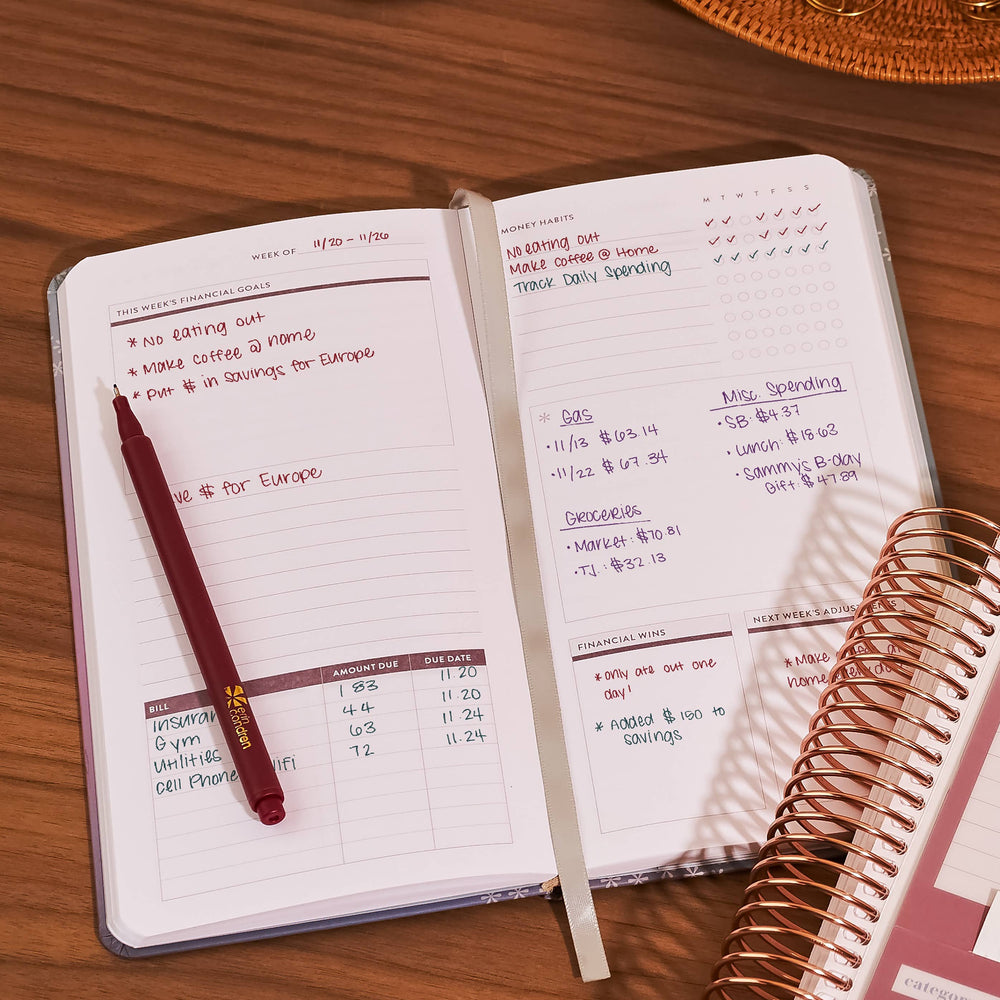 WEEK OF 11/20 - 11/26
THIS WEEK'S FINANCIAL GOALS
* No eating out
* Make coffee @ home
* Put $ in savings for Europe
$ for Europe
BILL AMOUNT DUE DUE DATE
183 11.20
Gym 44 11.20
Utilities 63 11.24
Cell Phone 72 11.24
erin condren
MONEY HABITS M T W T F S S
No eating out ✓ ✓ ✓ ✓ ✓ ✓
Make coffee @ Home ✓ ✓ ✓ ✓ ✓ ✓
Track Daily Spending ✓ ✓ ✓ ✓ ✓ ✓ ✓
* Gas
• 11/13 $63.14
• 11/22 $67.34
Groceries
• Market: $70.81
• TJ.: $32.13
Misc. Spending
• SB: $4.37
• Lunch: $18.63
• Sammy's B-day
Gift: $47.89
FINANCIAL WINS
* only ate out one
day!
* Added $150 to
savings
NEXT WEEK'S
* Make